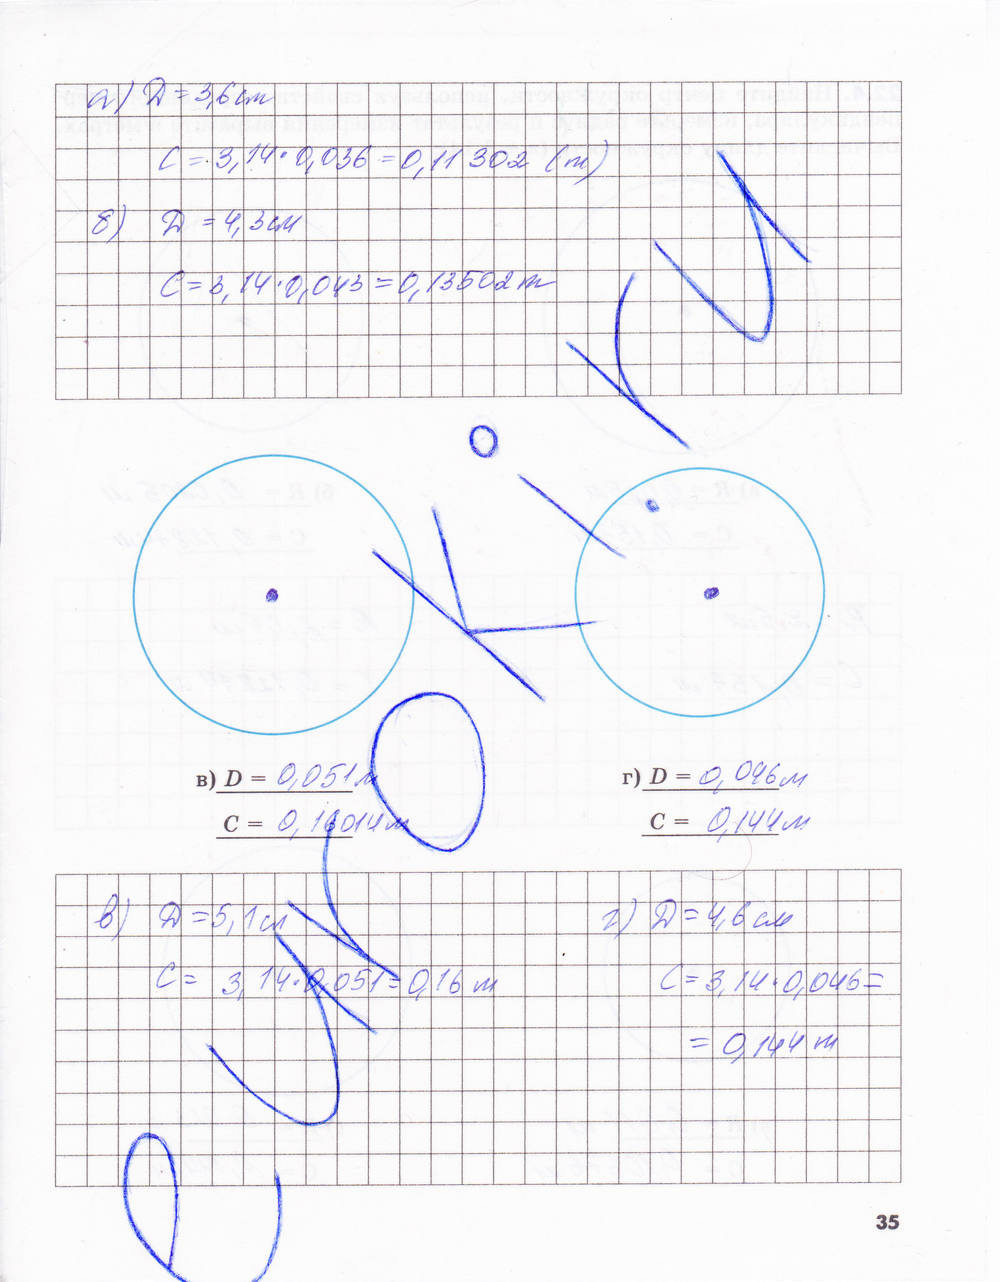 а) D = 3,6 см
C = 3,14 · 0,036 = 0,11302 (m)
б) D = 4,3 см
C = 3,14 · 0,043 = 0,13502 m
в) D = 0,051 м
C = 0,16014 м
г) D = 0,046 м
C = 0,144 м
в) D = 5,1 см
C = 3,14 · 0,051 = 0,16 м
г) D = 4,6 см
C = 3,14 · 0,046 =
= 0,144 m
35